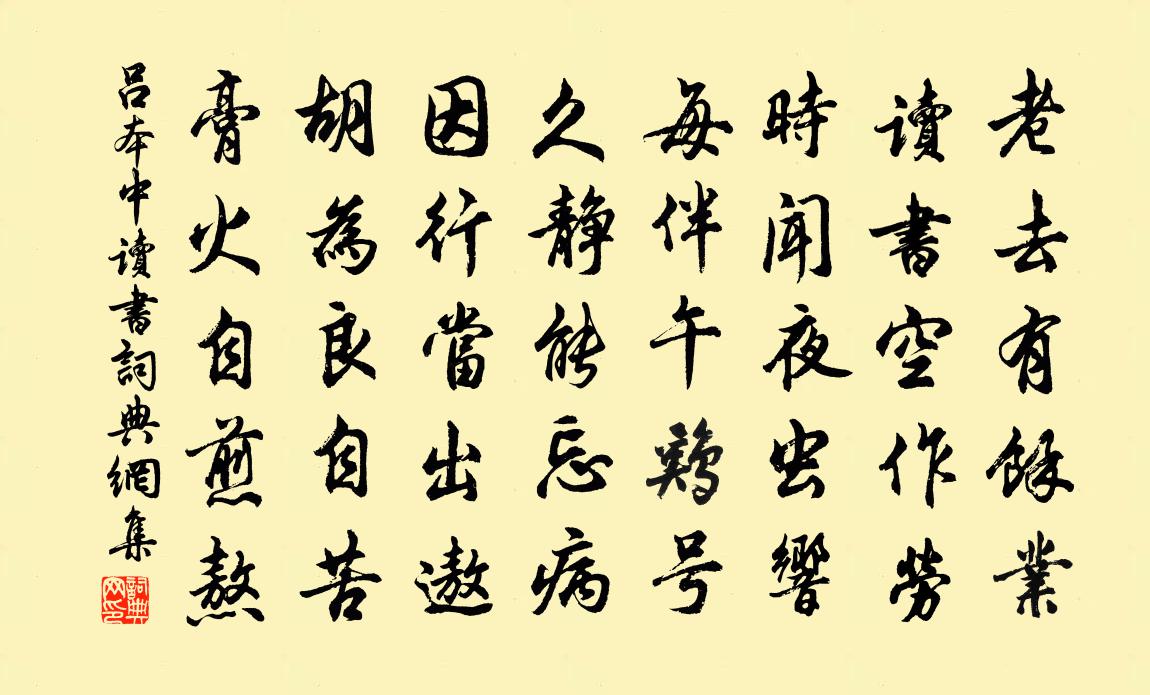 老去有餘業
讀書空作勞
時聞夜虫響
每伴午鷄号
久靜能忘病
因行當出遨
胡為良自苦
膏火自煎熬
吕本中讀書詞典網集
詞典网印